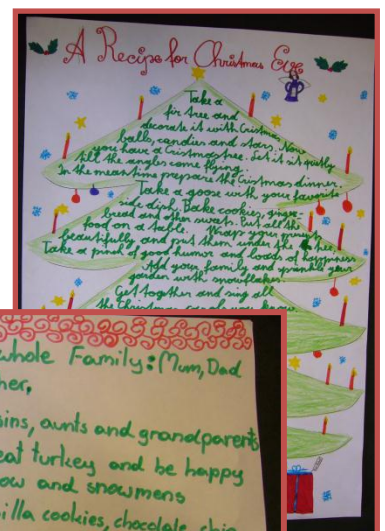 A Recipe for Christmas Eve
Take a
fir tree and
decorate it with Cristmas
balls, candies and stars. Now
you have a Cristmastree. Let it sit quietly
till the angles come flying.
In the meantime prepare the Cristmas dinner.
Take a goose with your favorite
side dish. Bake cookies, ginger-
bread and other sweets. Put all the
food on a table. Wrap your presents
beautifully and put them under the tree.
Take a pinch of good humor and loads of happiness
Add your family and sprinkle your
garden with snowflakes.
Get together and sing all
the Christmas carols you know.
whole Family: Mum, Dad
her,
sins, aunts and grandparents
eat turkey and be happy
ow and snowmens
illa cookies, chocolate chip